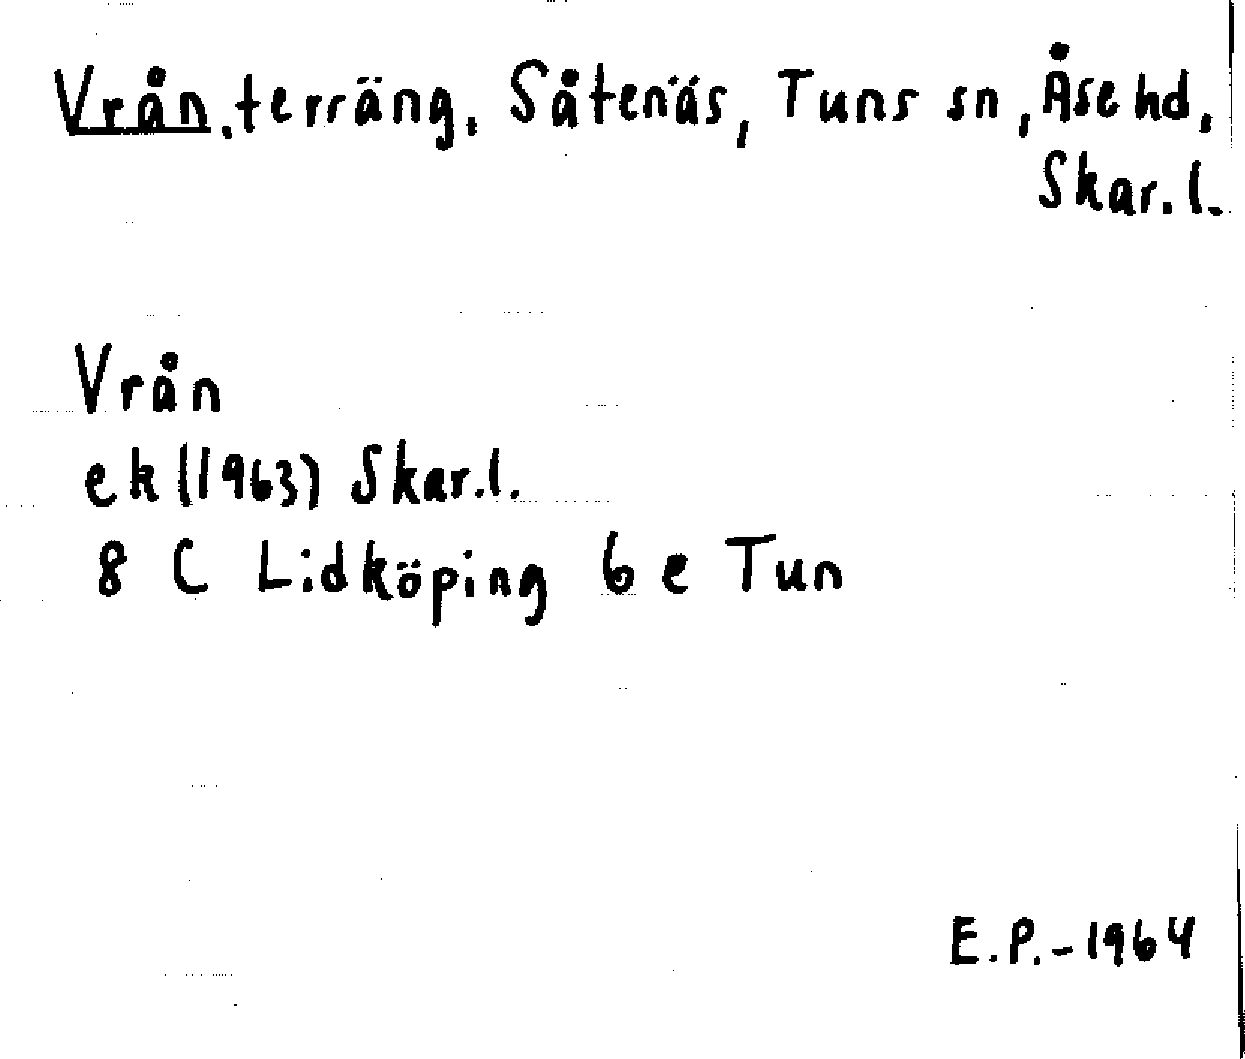 Vrån, terräng, Såtenäs, Tuns sn, Åse hd,
Skar. l.
Vrån
ek (1963) Skar. l.
8 C Lidköping 6 e Tun
E.P.-1964